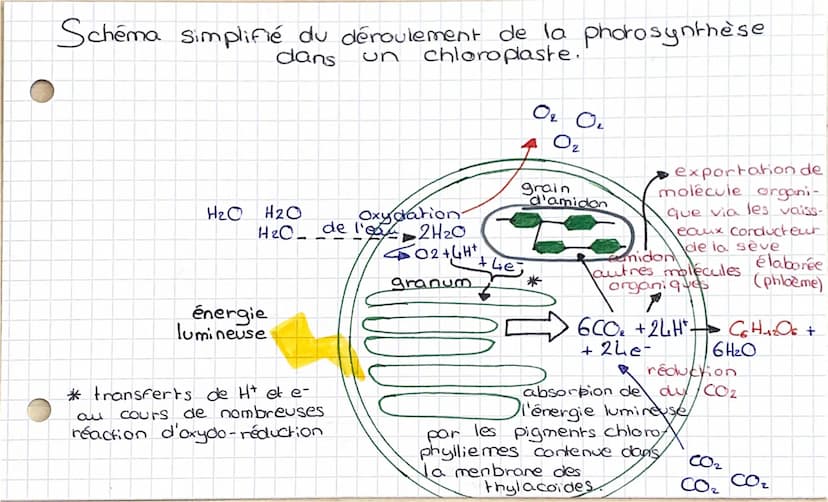 Schéma simplifié du déroulement de la photosynthèse
dans un chloroplaste.
O₂ O₂
O₂
exportation de
molécule organi-
que via les vaiss-
eaux conducteur
de la sève
élaborée
(phloème)
grain
d'amidon
H2O H2O
H2O
Oxydation
de l'eau
2H2O
O2+4H⁺
+4e⁻
*
granum
amidon
autres molécules
organiques
énergie
lumineuse
6CO₂ +24H⁺
+ 24e⁻
C₆H₁₂O₆ +
6H₂O
réduction
du CO2
* transferts de H⁺ et e-
au cours de nombreuses
réaction d'oxydo-réduction
absorption de
l'énergie lumineuse
par les pigments chloro-
phylliemes contenue dans
la menbrane des
thylacoïdes.
CO₂
CO₂ CO₂